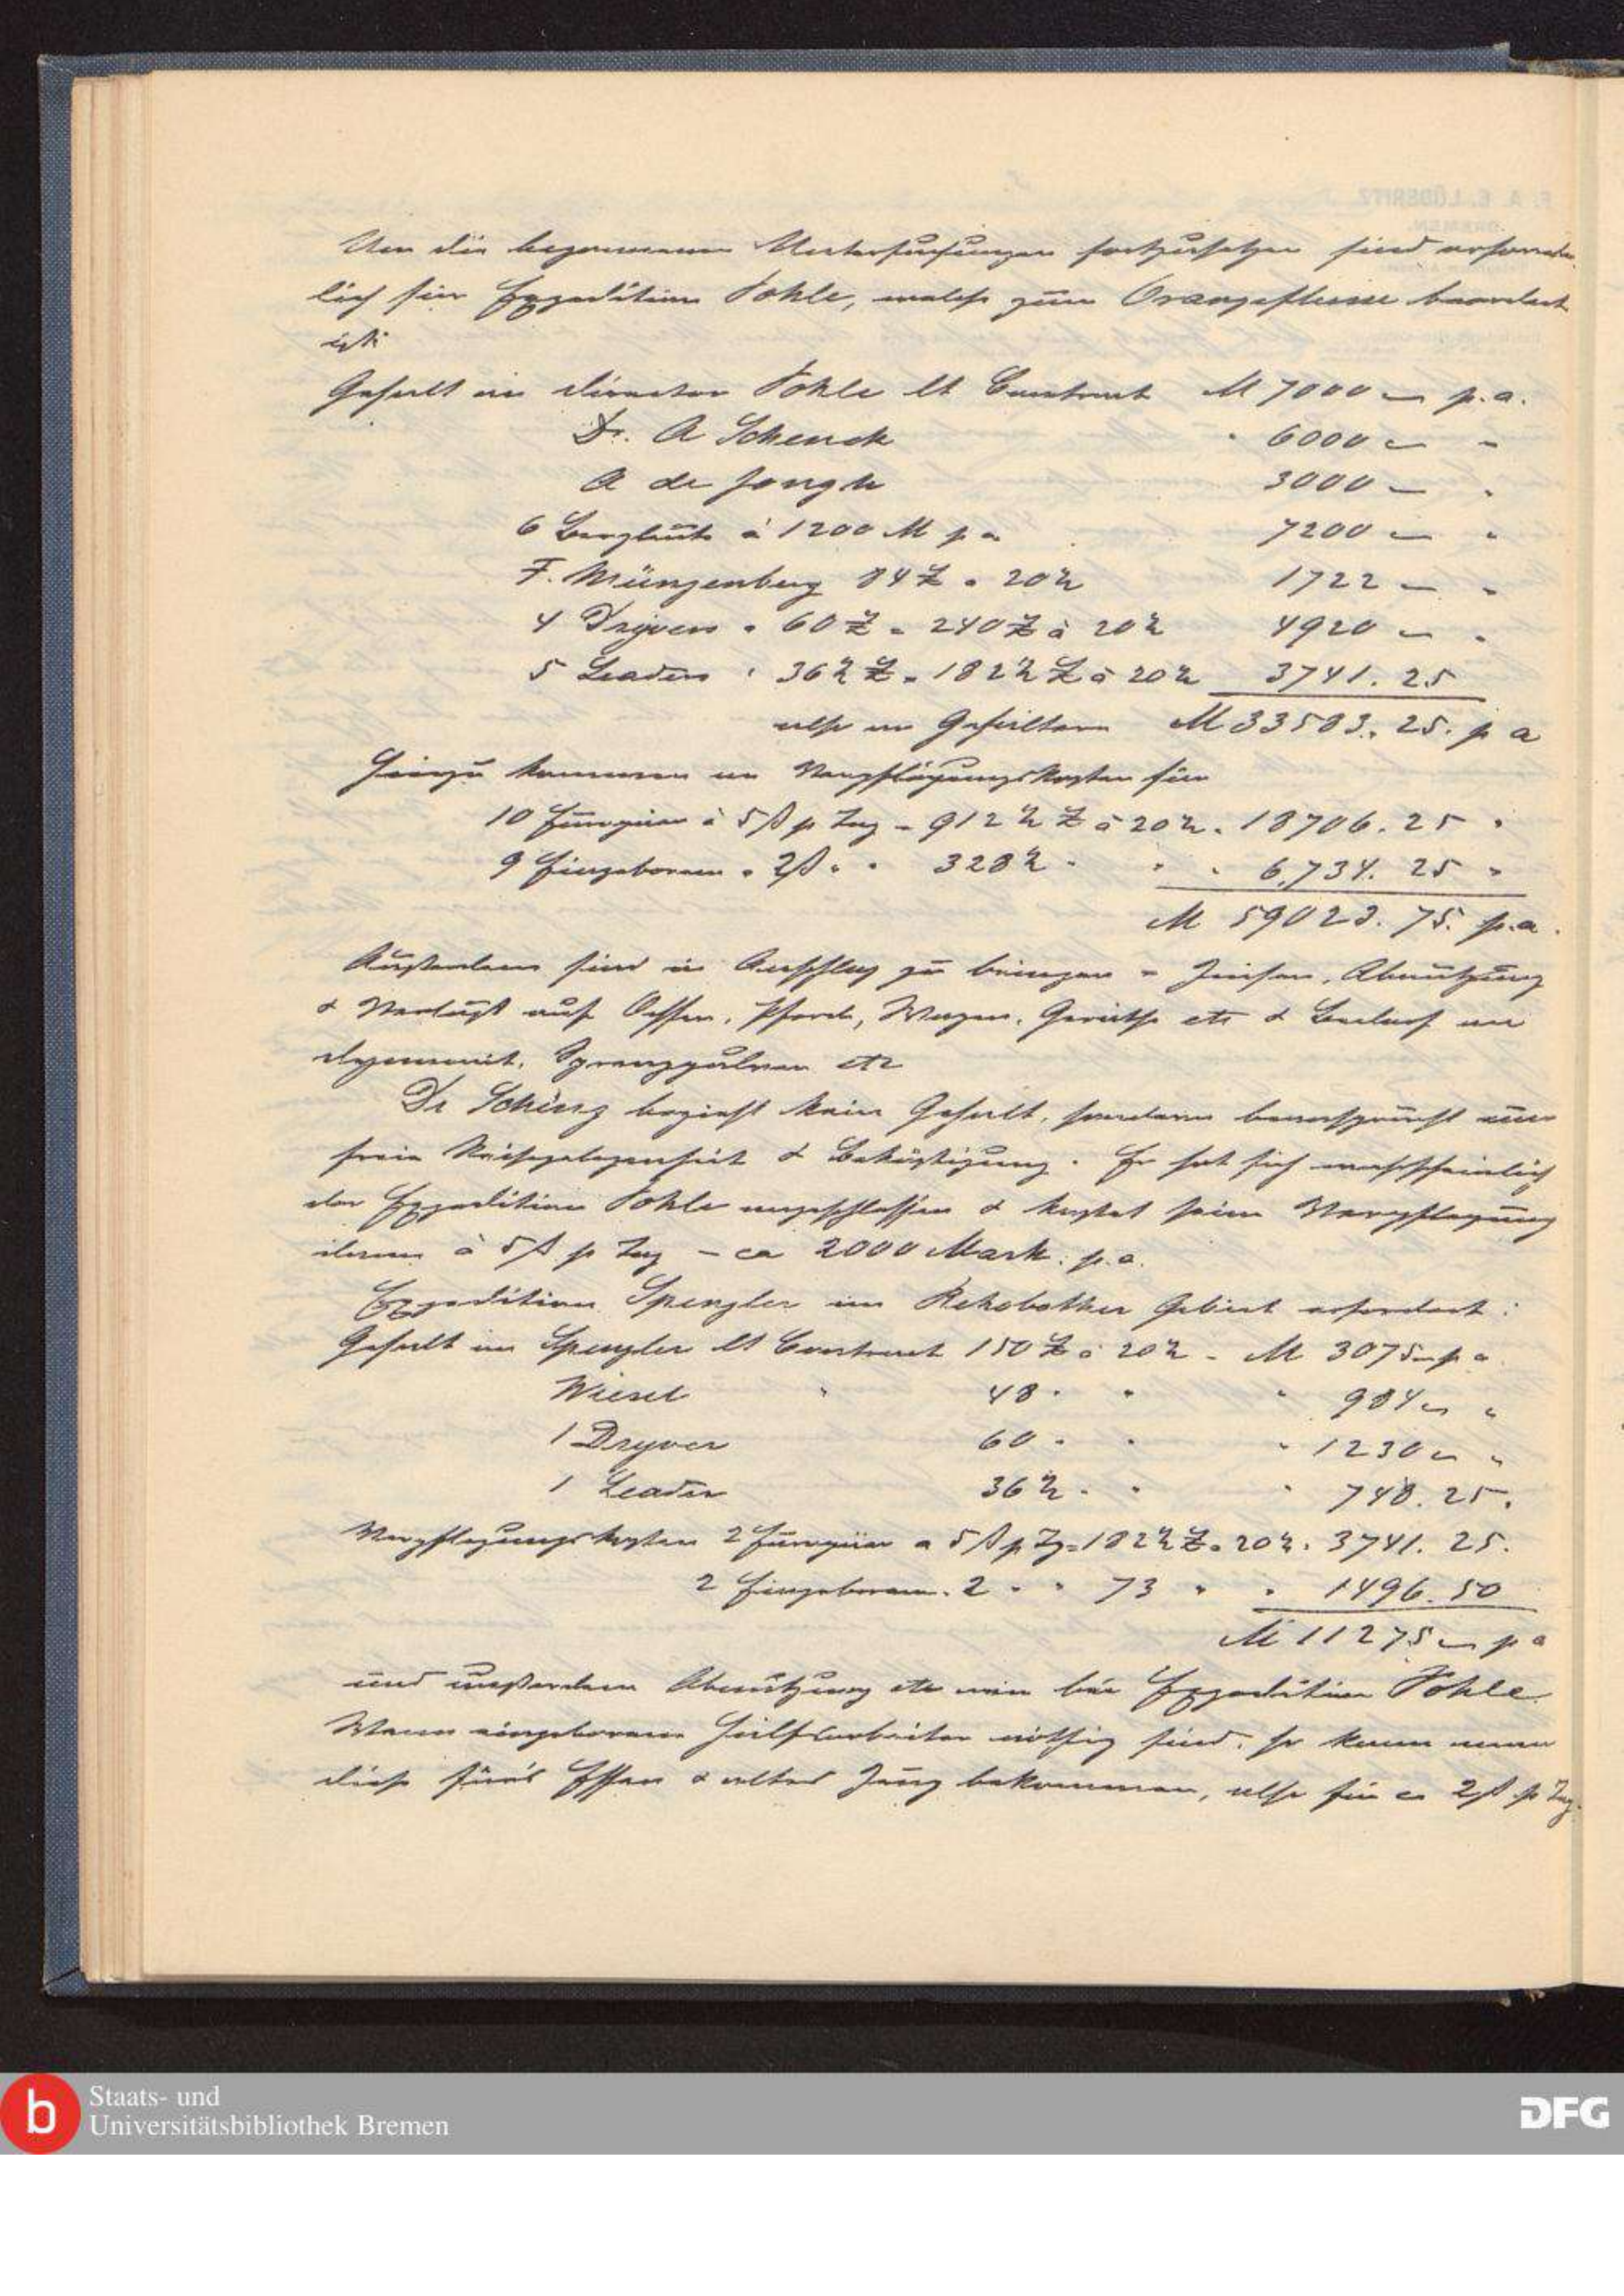 Um die begonnenen Untersuchungen fortzusetzen sind erforder-
lich für Expedition Pohle, welche zum Orangeflusse beordert
ist:
Gehalt an Director Pohle lt Contract M 7000 — p. a.
Dr. A Schenck " 6000 — "
A de Jongh 3000 — "
6 Bergleute à 1200 M p a 7200 — "
F. Münzenberg 84 £ " 20½ 1722 — "
4 Dryvers " 60 £ = 240 £ à 20½ 4920 — "
5 Leaders " 36½ £ = 182½ £ à 20½ 3741. 25
also an Gehältern M 33583. 25. p a
Hinzu kommen an Verpflegungskosten für
10 Europäer à 5 ß p Tag = 912½ £ à 20½ = 18706. 25 "
9 Eingeborene " 2 ß " " 328½ " " " 6,734. 25 "
M 59023. 75. p. a.
Außerdem sind in Anschlag zu bringen = Zinsen, Abnutzung
& Verlust auf Ochsen, Pferde, Wagen, Geräthe etc & Bedarf an
Dynamit, Sprengpulver etc
Dr Schinz bezieht kein Gehalt, sondern beansprucht nur
freie Reisegelegenheit & Beköstigung. Er hat sich wahrscheinlich
der Expedition Pohle angeschlossen & kostet seine Verpflegung
dann à 5 ß p Tag — ca 2000 Mark p. a.
Expedition Spengler im Rehobother Gebiet erfordert:
Gehalt an Spengler lt Contract 150 £ à 20½ = M 3075 — p a
Wiesel " 48 " " " 984 — "
1 Dryver 60 " " " 1230 — "
1 Leader 36½ " " " 748. 25.
Verpflegungskosten 2 Europäer a 5 ß p Tg = 182½ £ " 20½ = 3741. 25.
2 Eingeborene " 2 " " 73 " " 1496. 50
M 11275 — p a
und außerdem Abnutzung etc wie bei Expedition Pohle
Wenn eingeborene Hülfsarbeiter nöthig sind, so kann man
diese für's Essen & altes Zeug bekommen, also für ca 2 ß p Tag.
Staats- und
Universitätsbibliothek Bremen
DFG